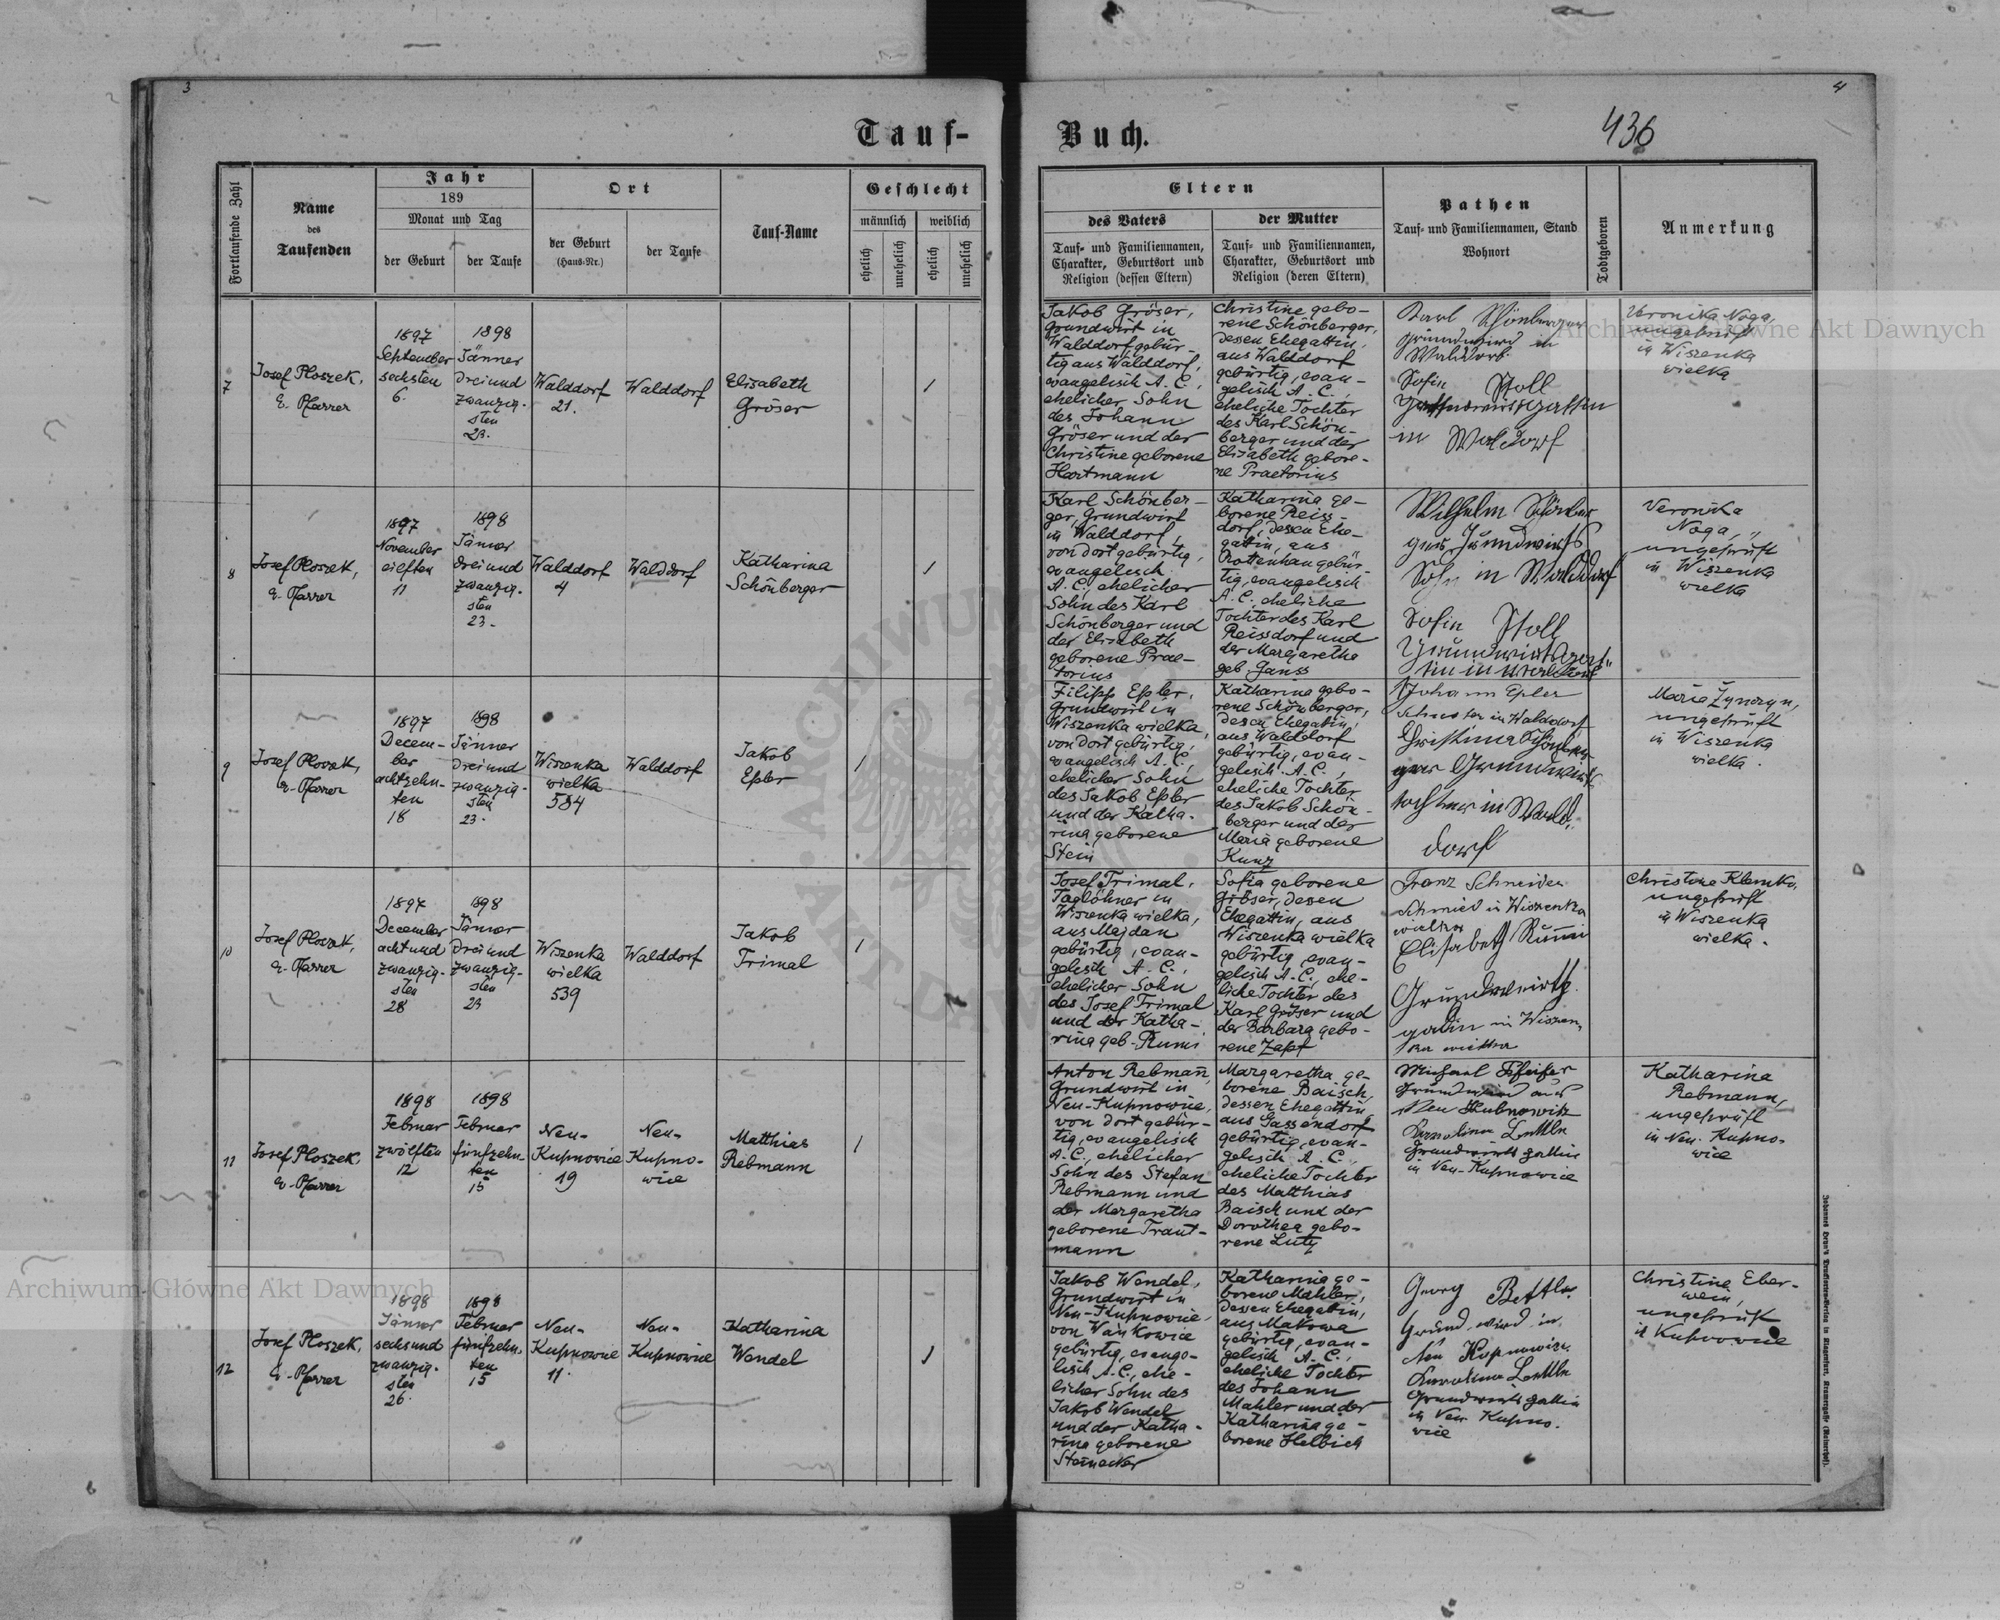 3
Tauf-
Fortlaufende Zahl
Name
des
Taufenden
Jahr
189
Monat und Tag
der Geburt
der Taufe
Ort
der Geburt
(Haus-Nr.)
der Taufe
Tauf-Name
Geschlecht
männlich
weiblich
ehelich
unehelich
ehelich
unehelich
7
Josef Ploszek,
E. Pfarrer
1897
September
sechsten
6.
1898
Jänner
dreiund
zwanzig-
sten
23.
Walddorf
21.
Walddorf
Elisabeth
Gröser
1
8
Josef Ploszek,
E. Pfarrer
1897
November
eilften
11
1898
Jänner
dreiund
zwanzig-
sten
23.
Walddorf
4
Walddorf
Katharina
Schönberger
1
9
Josef Ploszek,
E. Pfarrer
1897
Decem-
ber
achtzehn-
ten
18
1898
Jänner
dreiund
zwanzig-
sten
23.
Wiszenka
wielka
584
Walddorf
Jakob
Eßler
1
10
Josef Ploszek,
E. Pfarrer
1897
December
acht und
zwanzig-
sten
28
1898
Jänner
dreiund
zwanzig-
sten
23
Wiszenka
wielka
539
Walddorf
Jakob
Trimal
1
11
Josef Ploszek,
E. Pfarrer
1898
Februar
zwölften
12
1898
Februar
fünfzehn-
ten
15
Neu-
Kupnowice
19
Neu-
Kupno-
wice
Matthias
Rebmann
1
12
Josef Ploszek,
E. Pfarrer
1898
Jänner
sechsund
zwanzig-
sten
26.
1898
Februar
fünfzehn-
ten
15
Neu-
Kupnowice
11.
Neu-
Kupnowice
Katharina
Wendel
1
4
Buch.
436
Eltern
des Vaters
Tauf- und Familiennamen,
Charakter, Geburtsort und
Religion (dessen Eltern)
der Mutter
Tauf- und Familiennamen,
Charakter, Geburtsort und
Religion (deren Eltern)
Pathen
Tauf- und Familiennamen, Stand
Wohnort
Todtgeboren
Anmerkung
Jakob Gröser,
Grundwirt in
Walddorf gebür-
tig aus Walddorf,
evangelisch A. C.,
ehelicher Sohn
des Johann
Gröser und der
Christine geborene
Hartmann
Christine gebo-
rene Schönberger,
dessen Ehegattin,
aus Walddorf
gebürtig, evan-
gelisch A. C.,
eheliche Tochter
des Karl Schön-
berger und der
Elisabeth gebore-
ne Praetorius
Karl Schönberger
Grundwird in
Walddorf
Sofin Stoll
in Waldorf
Veronika Noga,
ungeprüft
in Wiszenka
wielka
Karl Schönber-
ger, Grundwirt
in Walddorf,
von dort gebürtig,
evangelisch
A. C., ehelicher
Sohn des Karl
Schönberger und
der Elisabeth
geborene Prae-
torius
Katharina ge-
borene Reiss-
dorf, dessen Ehe-
gattin, aus
Rottenhan gebür-
tig, evangelisch
A. C., eheliche
Tochter des Karl
Reissdorf und
der Margaretha
geb. Ganss
Wilhelm Schönber
ger Grundwirts
Sohn in Walddorf
Sofin Stoll
Veronika
Noga,
ungeprüft
in Wiszenka
wielka
Filipp Eßler,
Grundwirt in
Wiszenka wielka,
von dort gebürtig,
evangelisch A. C.,
ehelicher Sohn
des Jakob Eßler
und der Katha-
rina geborene
Stein
Katharina gebo-
rene Schönberger,
dessen Ehegattin,
aus Walddorf
gebürtig, evan-
gelisch A. C.,
eheliche Tochter
des Jakob Schön-
berger und der
Maria geborene
Kunz
Johann Epler
Schuster in Walddorf
Christina Schönber
ger Grundwirts
tochter in Wald
dorf
Maria Zynczyn,
ungeprüft
in Wiszenka
wielka.
Josef Trimal,
Taglöhner in
Wiszenka wielka,
aus Majdan
gebürtig, evan-
gelisch A. C.,
ehelicher Sohn
des Josef Trimal
und der Katha-
rina geb. Rumi
Sofia geborene
Gröser, dessen
Ehegattin, aus
Wiszenka wielka
gebürtig, evan-
gelisch A. C., ehe-
liche Tochter des
Karl Gröser und
der Barbara gebo-
rene Zapf
Franz Schneider
Schmied in Wiszenka
wielka
Elisabeth Rumi
Grundweirths
gatin in Wiszen,
ka wielka
Christine Klemko,
ungeprüft
in Wiszenka
wielka.
Anton Rebmann,
Grundwirt in
Neu-Kupnowice,
von dort gebür-
tig, evangelisch
A. C., ehelicher
Sohn des Stefan
Rebmann und
der Margaretha
geborene Traut-
mann
Margaretha ge-
borene Baisch,
dessen Ehegattin
aus Gassendorf
gebürtig, evan-
gelisch A. C.,
eheliche Tochter
des Matthias
Baisch und der
Dorothea gebo-
rene Luty
Michael Pfeifer
Grundwird aus
Neu Kubnowitz
Karolina
Grundwirts gattin
in Neu-Kupnowice
Katharina
Rebmann,
ungeprüft
in Neu-Kupno-
wice
Jakob Wendel,
Grundwirt in
Neu-Kupnowice,
von Wańkowice
gebürtig, evange-
lisch A. C., ehe-
licher Sohn des
Jakob Wendel
und der Katha-
rina geborene
Steinacker
Katharina ge-
borene Mahler,
dessen Ehegattin,
aus Makowa
gebürtig, evan-
gelisch A. C.,
eheliche Tochter
des Johann
Mahler und der
Katharina ge-
borene Helbich
Georg
Grund wird in
Neu Kopnowize
Karolina
Grundwirts gattin
in Neu Kupno-
wice
Christina Eber-
wein,
ungeprüft
in Kupnowice
Archiwum Główne Akt Dawnych
Archiwum Główne Akt Dawnych